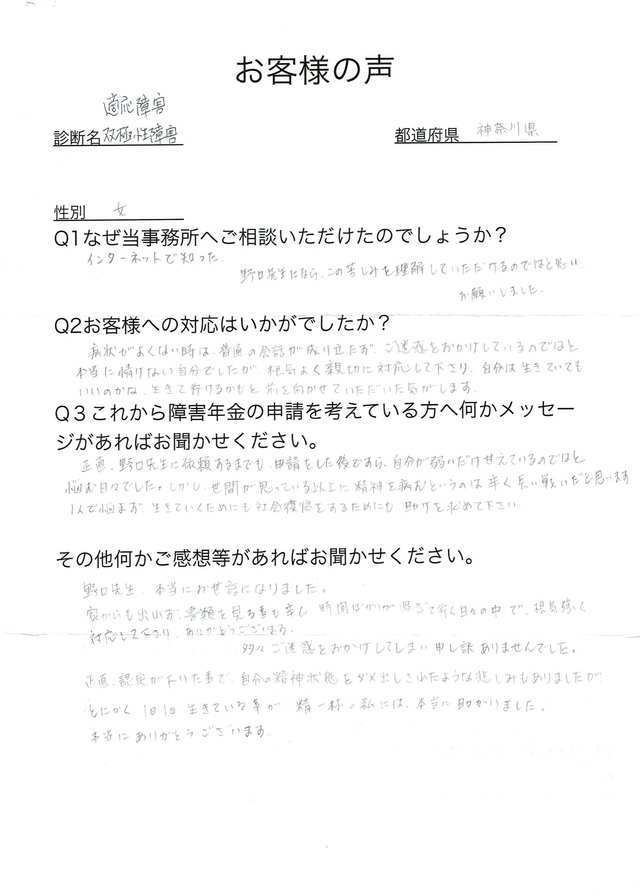 お客様の声
適応障害
診断名 双極性障害
都道府県 神奈川県
性別 女
Q1なぜ当事務所へご相談いただけたのでしょうか？
インターネットで知った。
野口先生になら、この苦しみを理解していただけるのではと思い
お願いしました。
Q2お客様への対応はいかがでしたか？
病状がよくない時は、普通の会話が成り立たず、ご迷惑をおかけしているのではと
本当に情けない自分でしたが、根気よく親切に対応して下さり、自分は生きていても
いいのかな、生きて行けるかもと前を向かせていただいた気がします。
Q３これから障害年金の申請を考えている方へ何かメッセー
ジがあればお聞かせください。
正直、野口先生に依頼するまでも、申請をした後ですら、自分が弱いだけ甘えているのではと
悩む日々でした。しかし、世間が思っている以上に精神を病むというのは辛く長い戦いだと思います
1人で悩まず生きていくためにも社会復帰をするためにも助けを求めて下さい。
その他何かご感想等があればお聞かせください。
野口先生、本当にお世話になりました。
家からも出れず、書類を見る事も辛く、時間ばかりが過ぎて行く日々の中で、根気強く
対応して下さり、ありがとうございます。
多々ご迷惑をおかけしてしまい申し訳ありませんでした。
正直、認定が下りた事で、自分の精神状態をダメ出しされたような悲しみもありましたが
とにかく1日1日生きている事が精一杯の私には、本当に助かりました。
本当にありがとうございます。